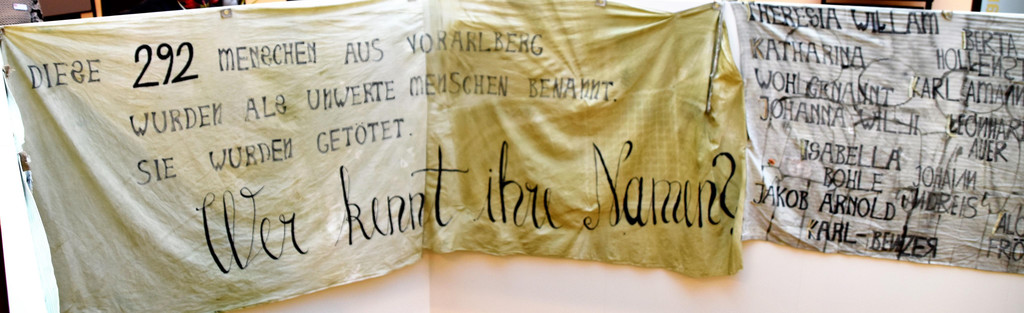 DIESE 292 MENSCHEN AUS VORARLBERG
WURDEN ALS UNWERTE MENSCHEN BENANNT.
SIE WURDEN GETÖTET.
Wer kennt ihre Namen?
THERESIA WILLAM
KATHARINA BERTA
WOHLGENANNT
KARL AMANN
JOHANNA
LEONHARD
AUER
ISABELLA
BÖHLE JOHANN
JAKOB ARNOLD
KARL BENZER